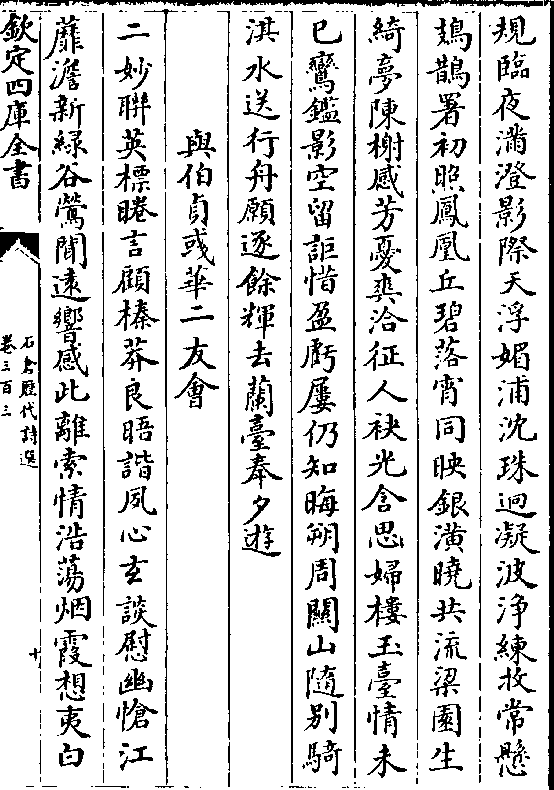 規臨夜滿澄影際天浮媚浦沈珠迥凝波浄練收常懸
鳷鵲署初照鳳凰丘碧落宵同映銀潢曉共流梁園生
綺夢陳榭感芳憂爽洽征人袂光含思婦樓玉臺情未
已鸞鑑影空留詎惜盈虧屢仍知晦朔周關山隨别騎
淇水送行舟願逐餘輝去蘭臺奉夕遊
與伯貞彧華二友會
二妙聯英標睠言顧榛莽良晤諧夙心玄談慰幽愴江
蘼澹新緑谷鶯聞逺響感此離索情浩蕩烟霞想夷白
欽定四庫全書
石倉歴代詩選
卷三百三
十